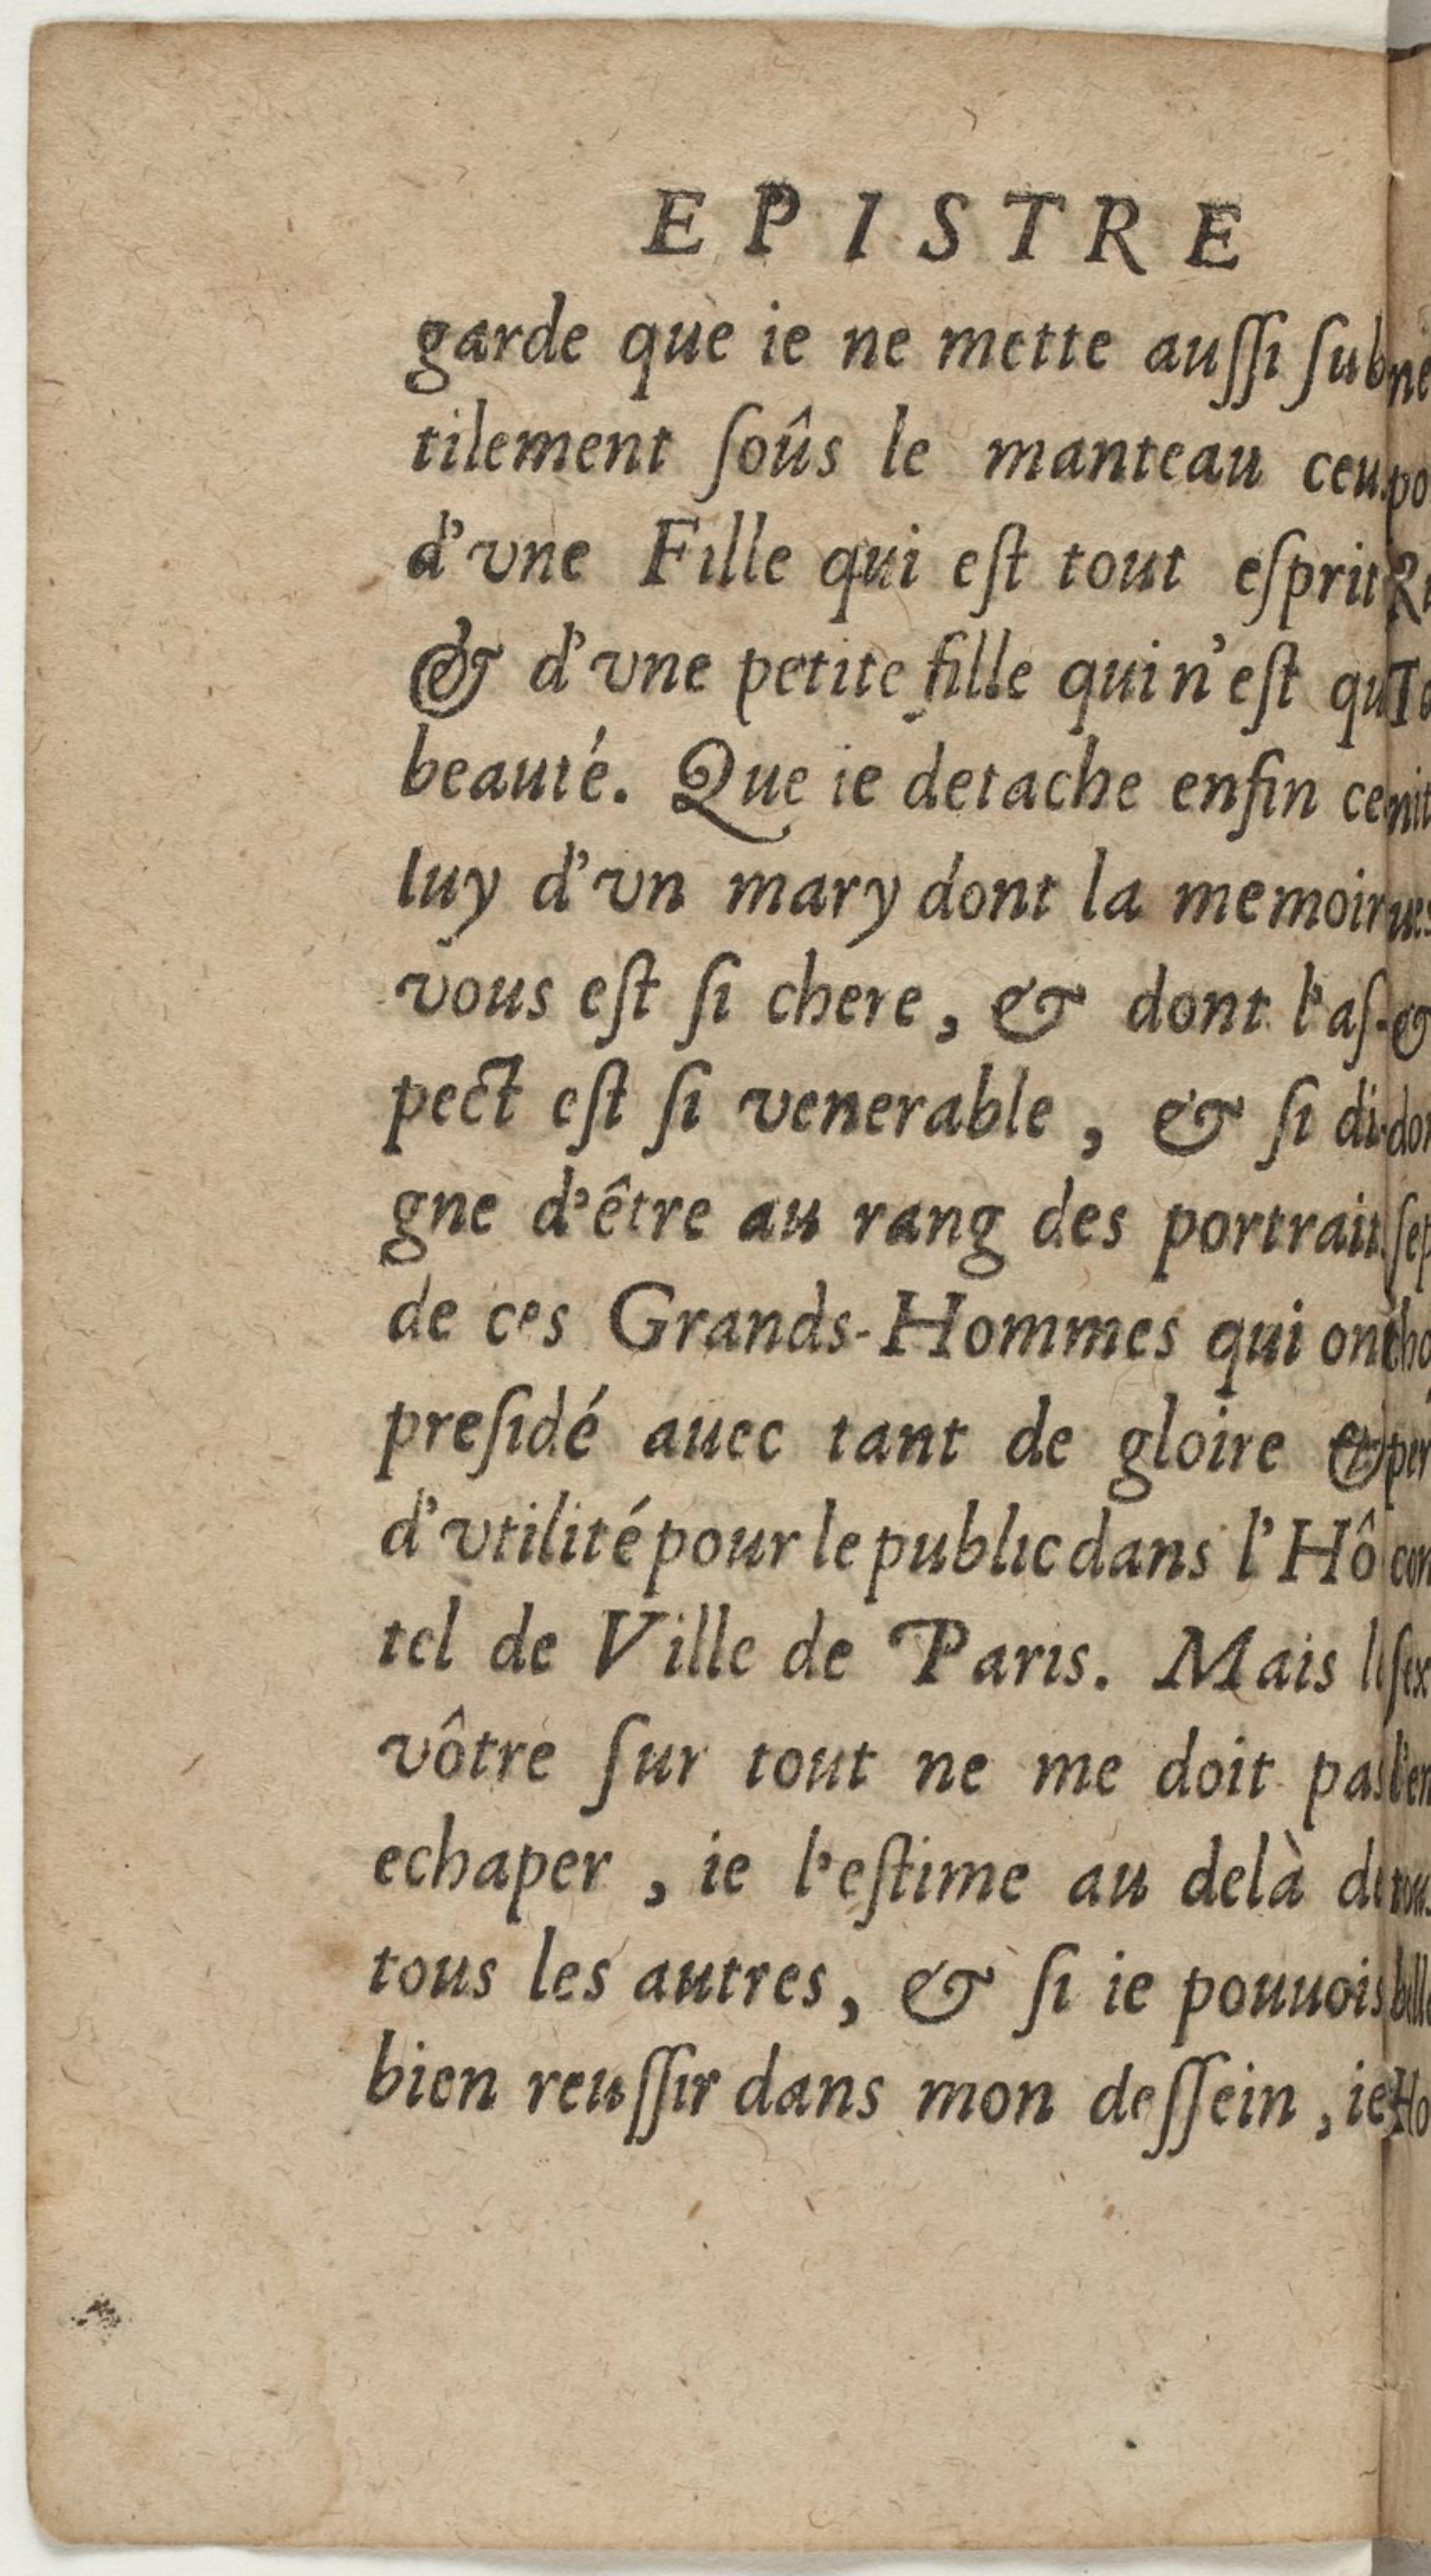 EPISTRE
garde que ie ne mette auſſi ſub
tilement ſoûs le manteau ceu
d'vne Fille qui eſt tout eſprit
& d'vne petite fille qui n'eſt qu
beauté. Que ie detache enfin ce
luy d'vn mary dont la memoir
vous eſt ſi chere, & dont l'aſ-
pect eſt ſi venerable, & ſi di-
gne d'être au rang des portrait
de ces Grands-Hommes qui ont
preſidé auec tant de gloire &
d'vtilité pour le public dans l'Hô
tel de Ville de Paris. Mais l
vôtre ſur tout ne me doit pas
echaper, ie l'eſtime au delà de
tous les autres, & ſi ie pouuois
bien reuſſir dans mon deſſein, ie